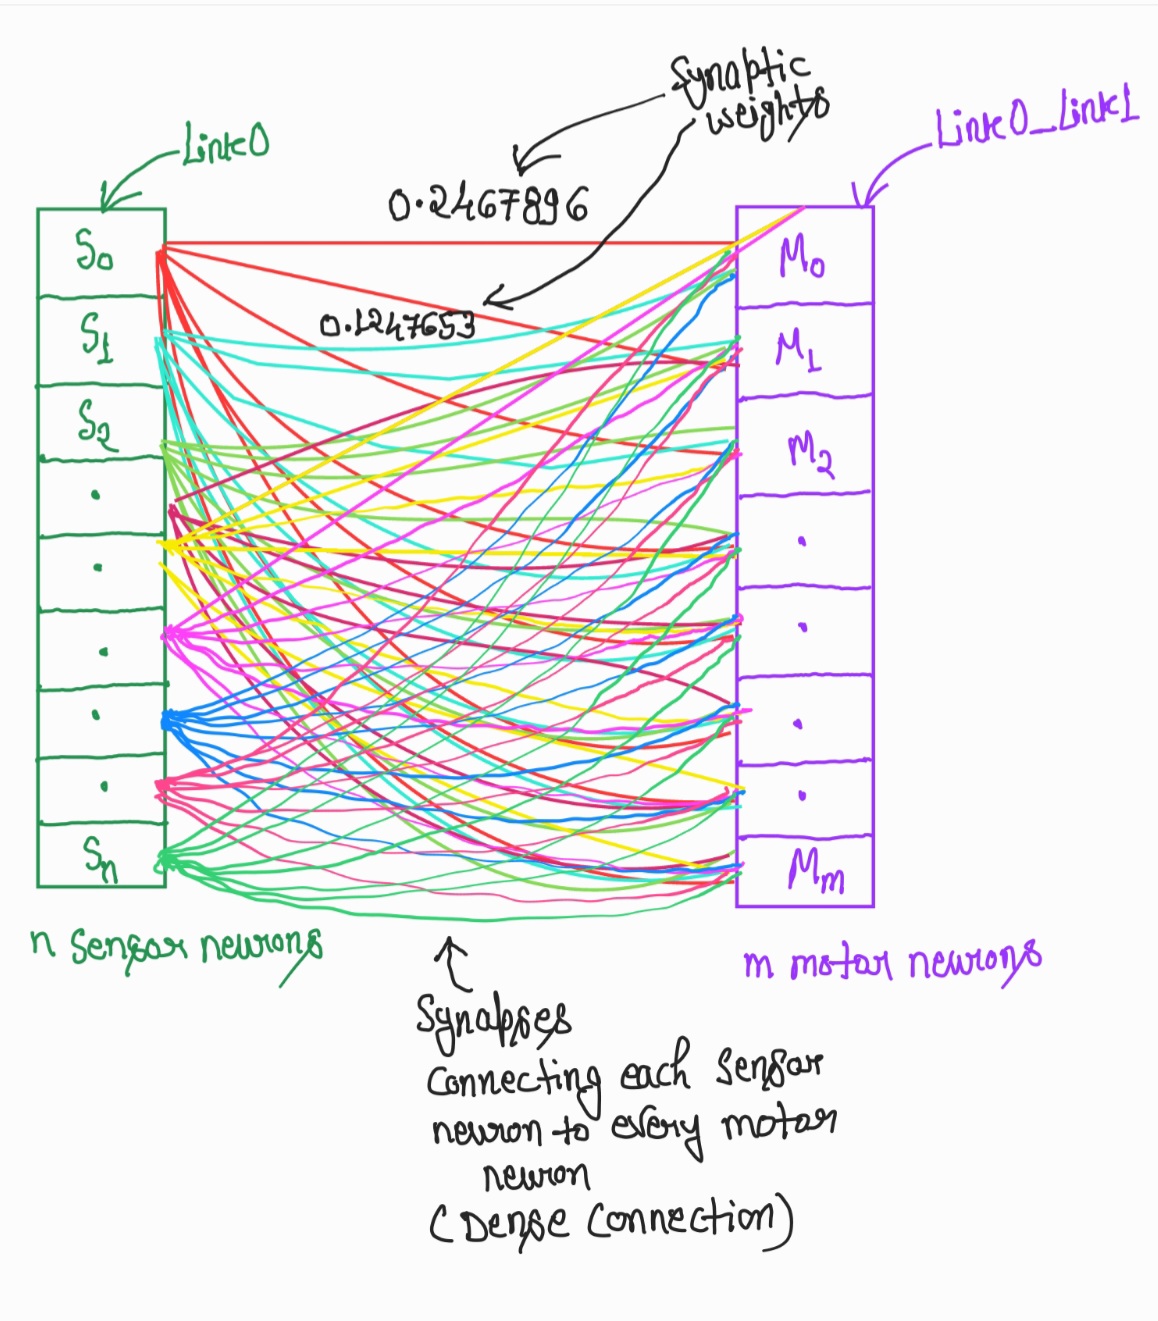 Synaptic
weights
Link0
Link0_Link1
0.2467896
0.1247653
S0
S1
S2
Sn
M0
M1
M2
Mm
n sensor neurons
m motor neurons
Synapses
Connecting each sensor
neuron to every motor
neuron
(Dense Connection)